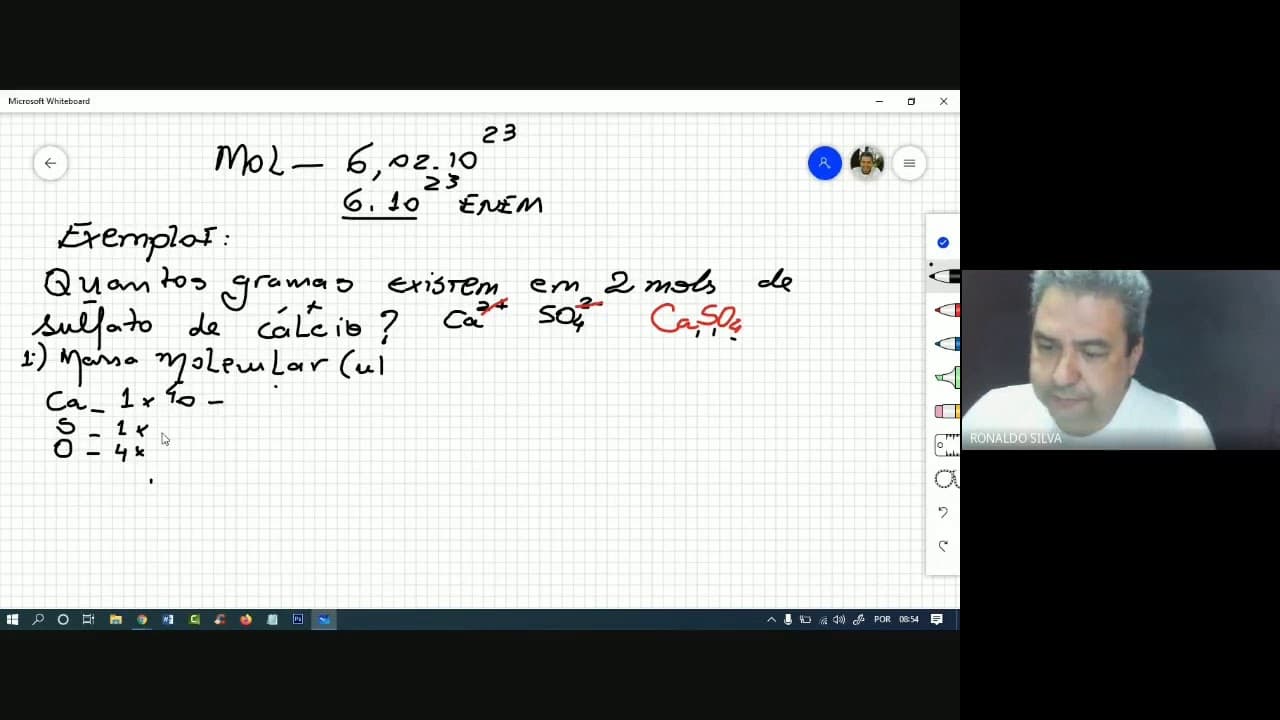 Microsoft Whiteboard
Mol — 6,02.10²³
6.10²³ ENEM
Exemplo I:
Quantos gramas existem em 2 mols de
sulfato de cálcio? Ca²⁺ SO₄²⁻ CaSO₄
1:) Massa molecular (u)
Ca - 1 x 40 -
S - 1 x
O - 4 x
RONALDO SILVA
POR 08:54